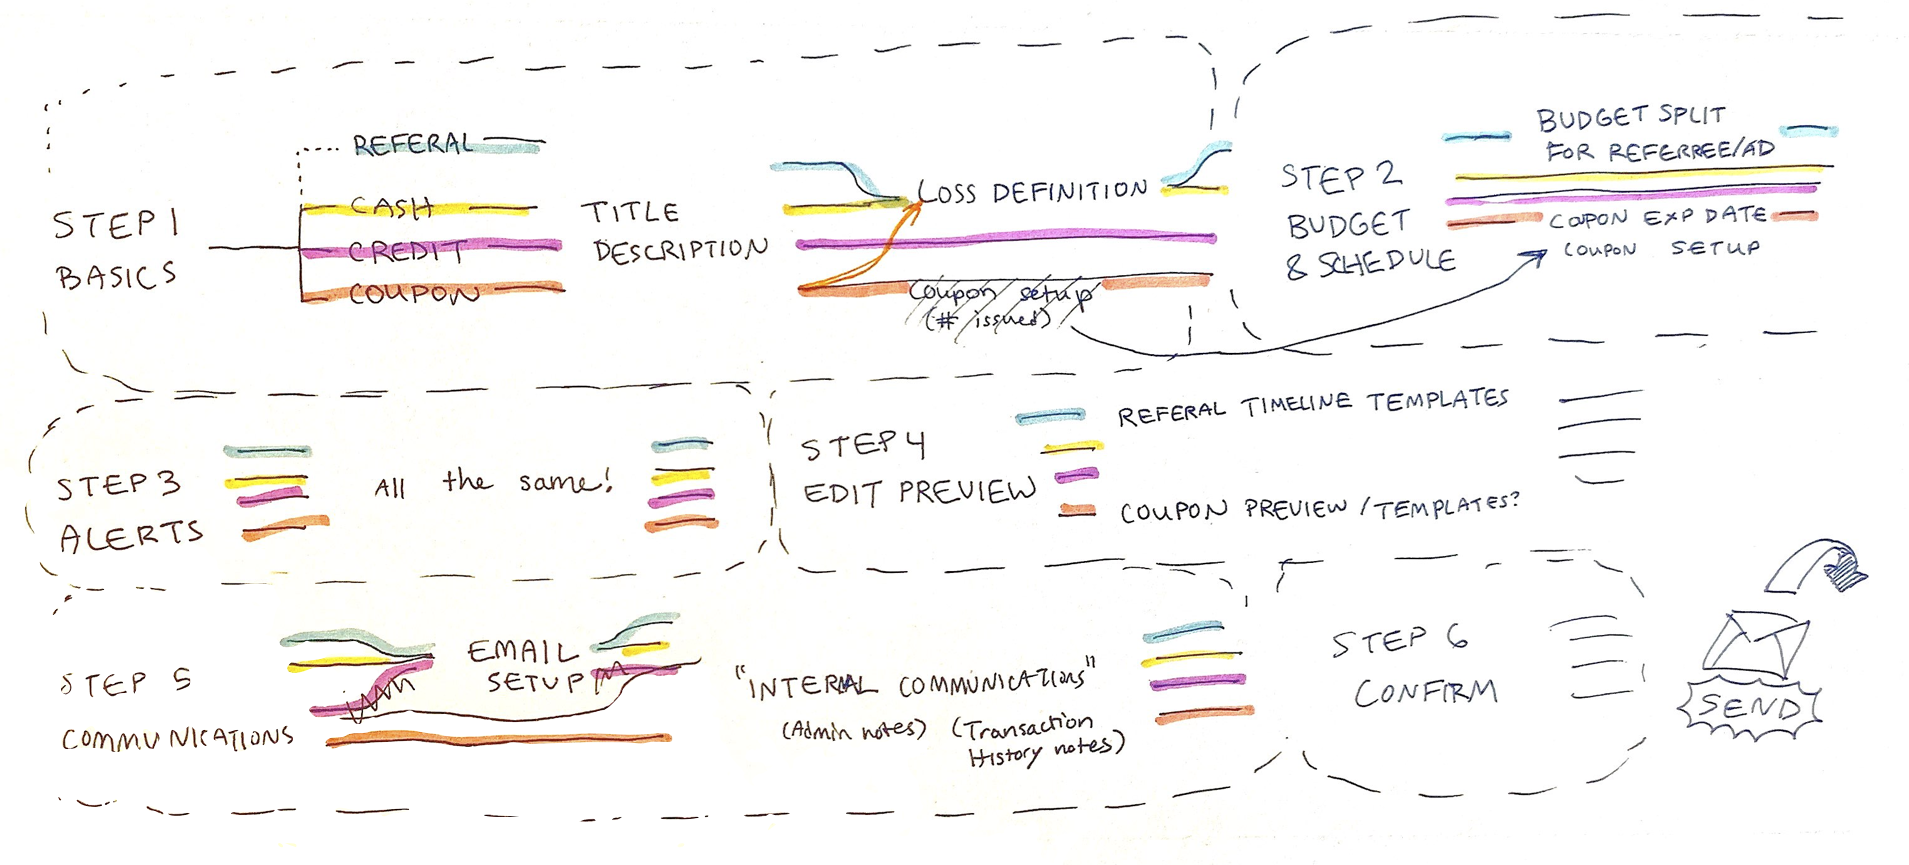 STEP 1
BASICS
REFERAL
CASH
CREDIT
COUPON
TITLE
DESCRIPTION
LOSS DEFINITION
Coupon setup
(# issued)
STEP 2
BUDGET
& SCHEDULE
BUDGET SPLIT
FOR REFERREE/AD
COUPON EXP DATE
COUPON SETUP
STEP 3
ALERTS
All the same!
STEP 4
EDIT PREVIEW
REFERAL TIMELINE TEMPLATES
COUPON PREVIEW / TEMPLATES?
STEP 5
COMMUNICATIONS
EMAIL
SETUP
"INTERNAL COMMUNICATIONS"
(Admin notes) (Transaction
History notes)
STEP 6
CONFIRM
SEND